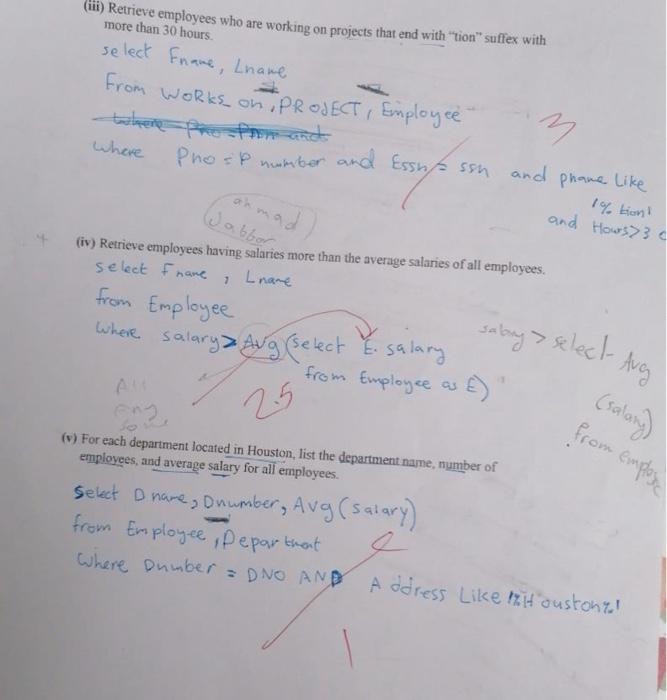 (iii) Retrieve employees who are working on projects that end with "tion" suffex with
more than 30 hours.
select Fname, Lname
From WORKS_on, PROJECT, Employee
where Pno = Pnum and
where Pno = P number and Essn = ssn and pname Like
'% tion'
and Hours>30
3
ahmad
Jabbar
(iv) Retrieve employees having salaries more than the average salaries of all employees.
select fname, Lname
from Employee
where salary> Avg (select E. salary
from Employee as E)
2.5
All
Any
Some
salary > select Avg
(salary)
from employee
(v) For each department located in Houston, list the department name, number of
employees, and average salary for all employees.
Select Dname, Dnumber, Avg (salary)
from Employee, Department
where Dnumber = DNO AND Address Like '%Houston%'
1